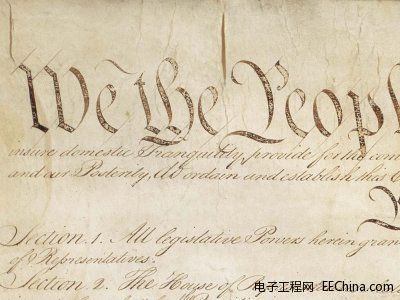 We the Peop
insure domestic Tranquility, provide for the com
and our Posterity, do ordain and establish this C
Section. 1. All legislative Powers herein gran
of Representatives.
Section. 2. The House of Rep
电子工程网 EEChina.com